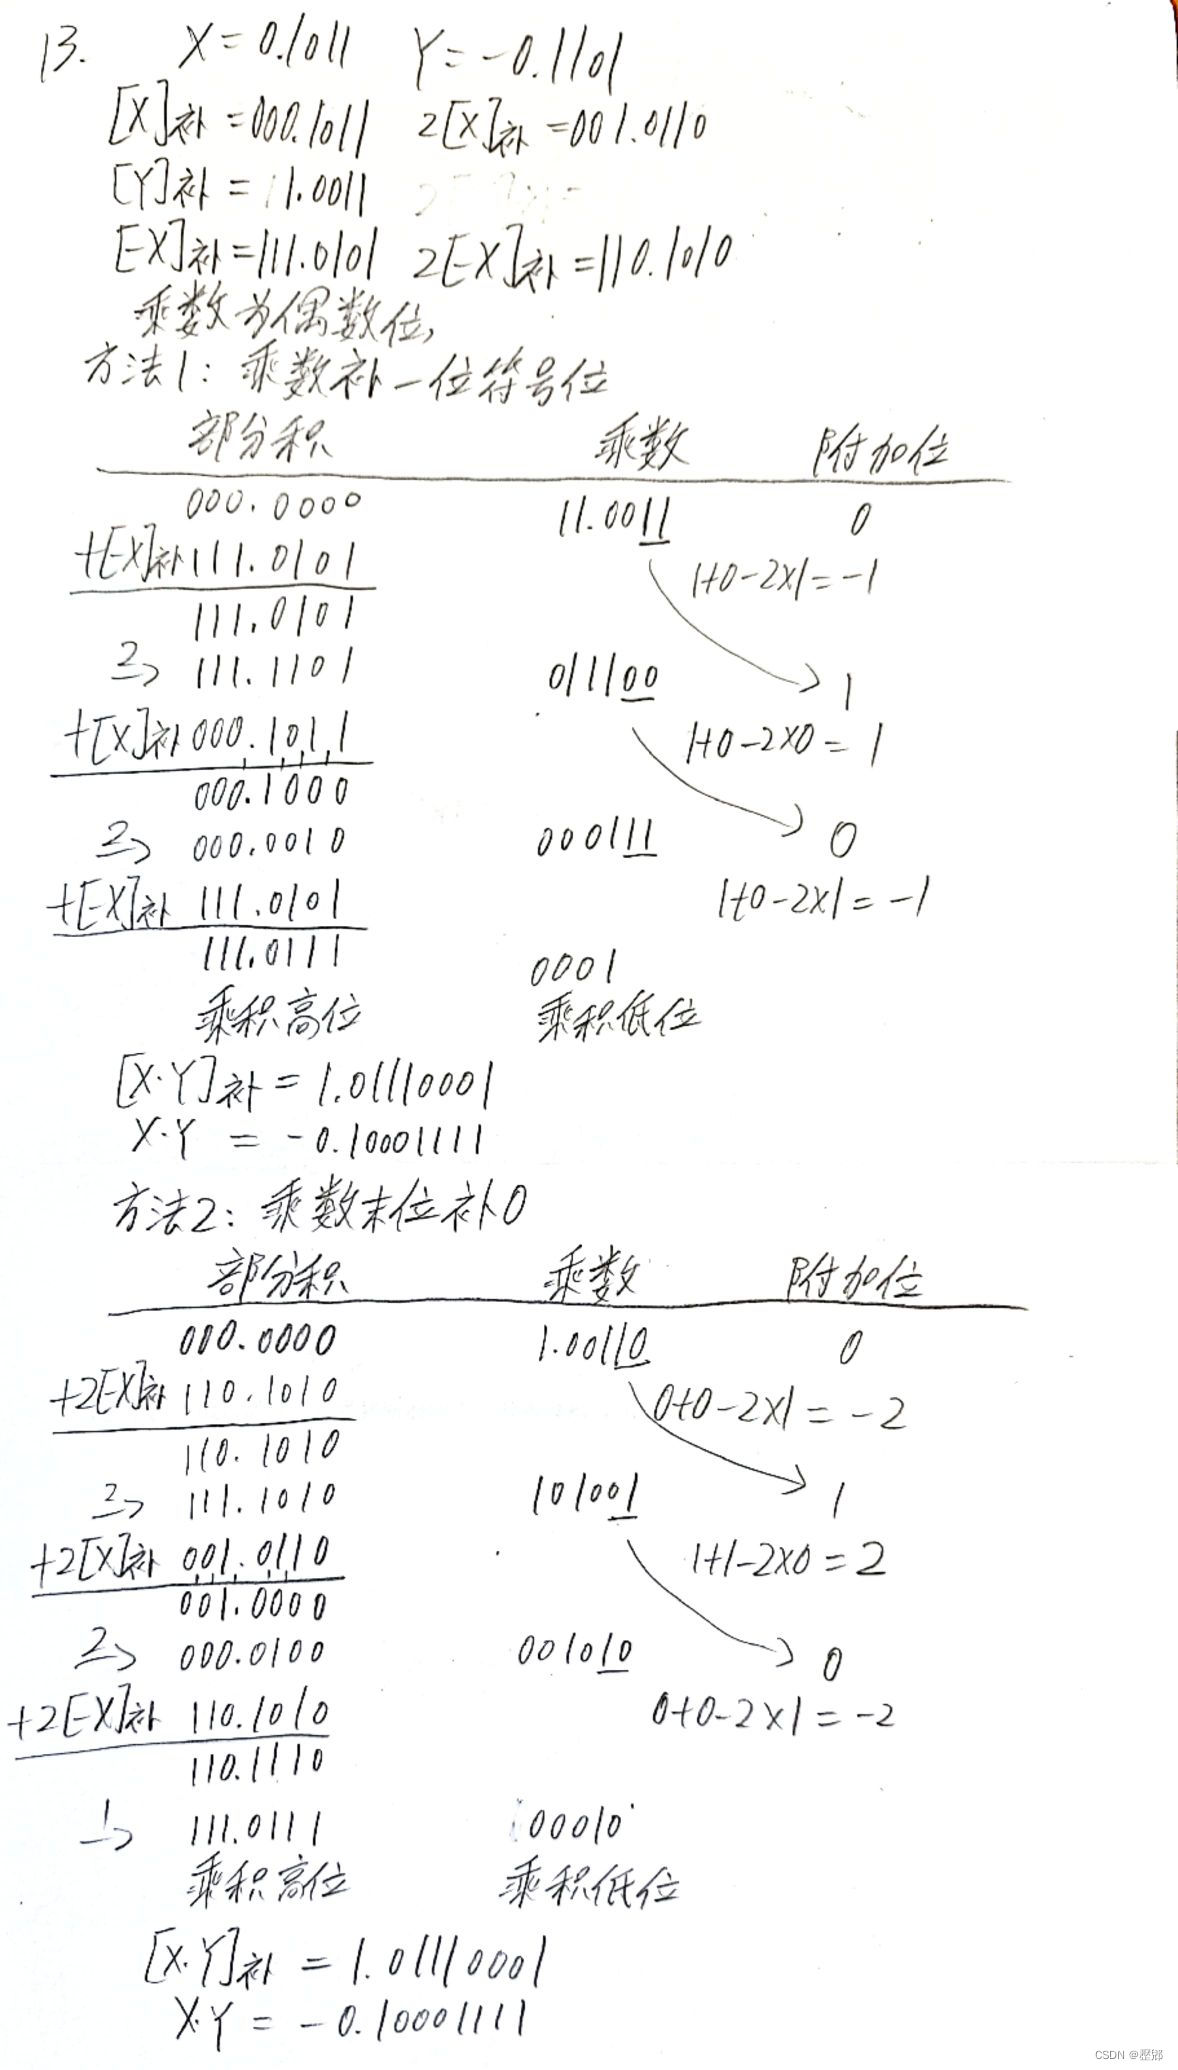 13. X=0.1011 Y=-0.1101
[X]补=000.1011 2[X]补=001.0110
[Y]补=11.0011
[-X]补=111.0101 2[-X]补=110.1010
乘数为偶数位,
方法1:乘数补一位符号位
部分积 乘数 附加位
000.0000 11.0011 0
+[-X]补111.0101 1+0-2×1=-1
111.0101
2→ 111.1101 011100 1
+[X]补000.1011 1+0-2×0=1
000.1000
2→ 000.0010 000111 0
+[-X]补 111.0101 1+0-2×1=-1
111.0111 0001
乘积高位 乘积低位
[X·Y]补=1.01110001
X·Y = -0.10001111
方法2:乘数末位补0
部分积 乘数 附加位
000.0000 1.00110 0
+2[-X]补 110.1010 0+0-2×1=-2
110.1010
2→ 111.1010 101001 1
+2[X]补 001.0110 1+1-2×0=2
001.0000
2→ 000.0100 001010 0
+2[-X]补 110.1010 0+0-2×1=-2
110.1110
1→ 111.0111 00010
乘积高位 乘积低位
[X·Y]补 = 1.01110001
X·Y = -0.10001111